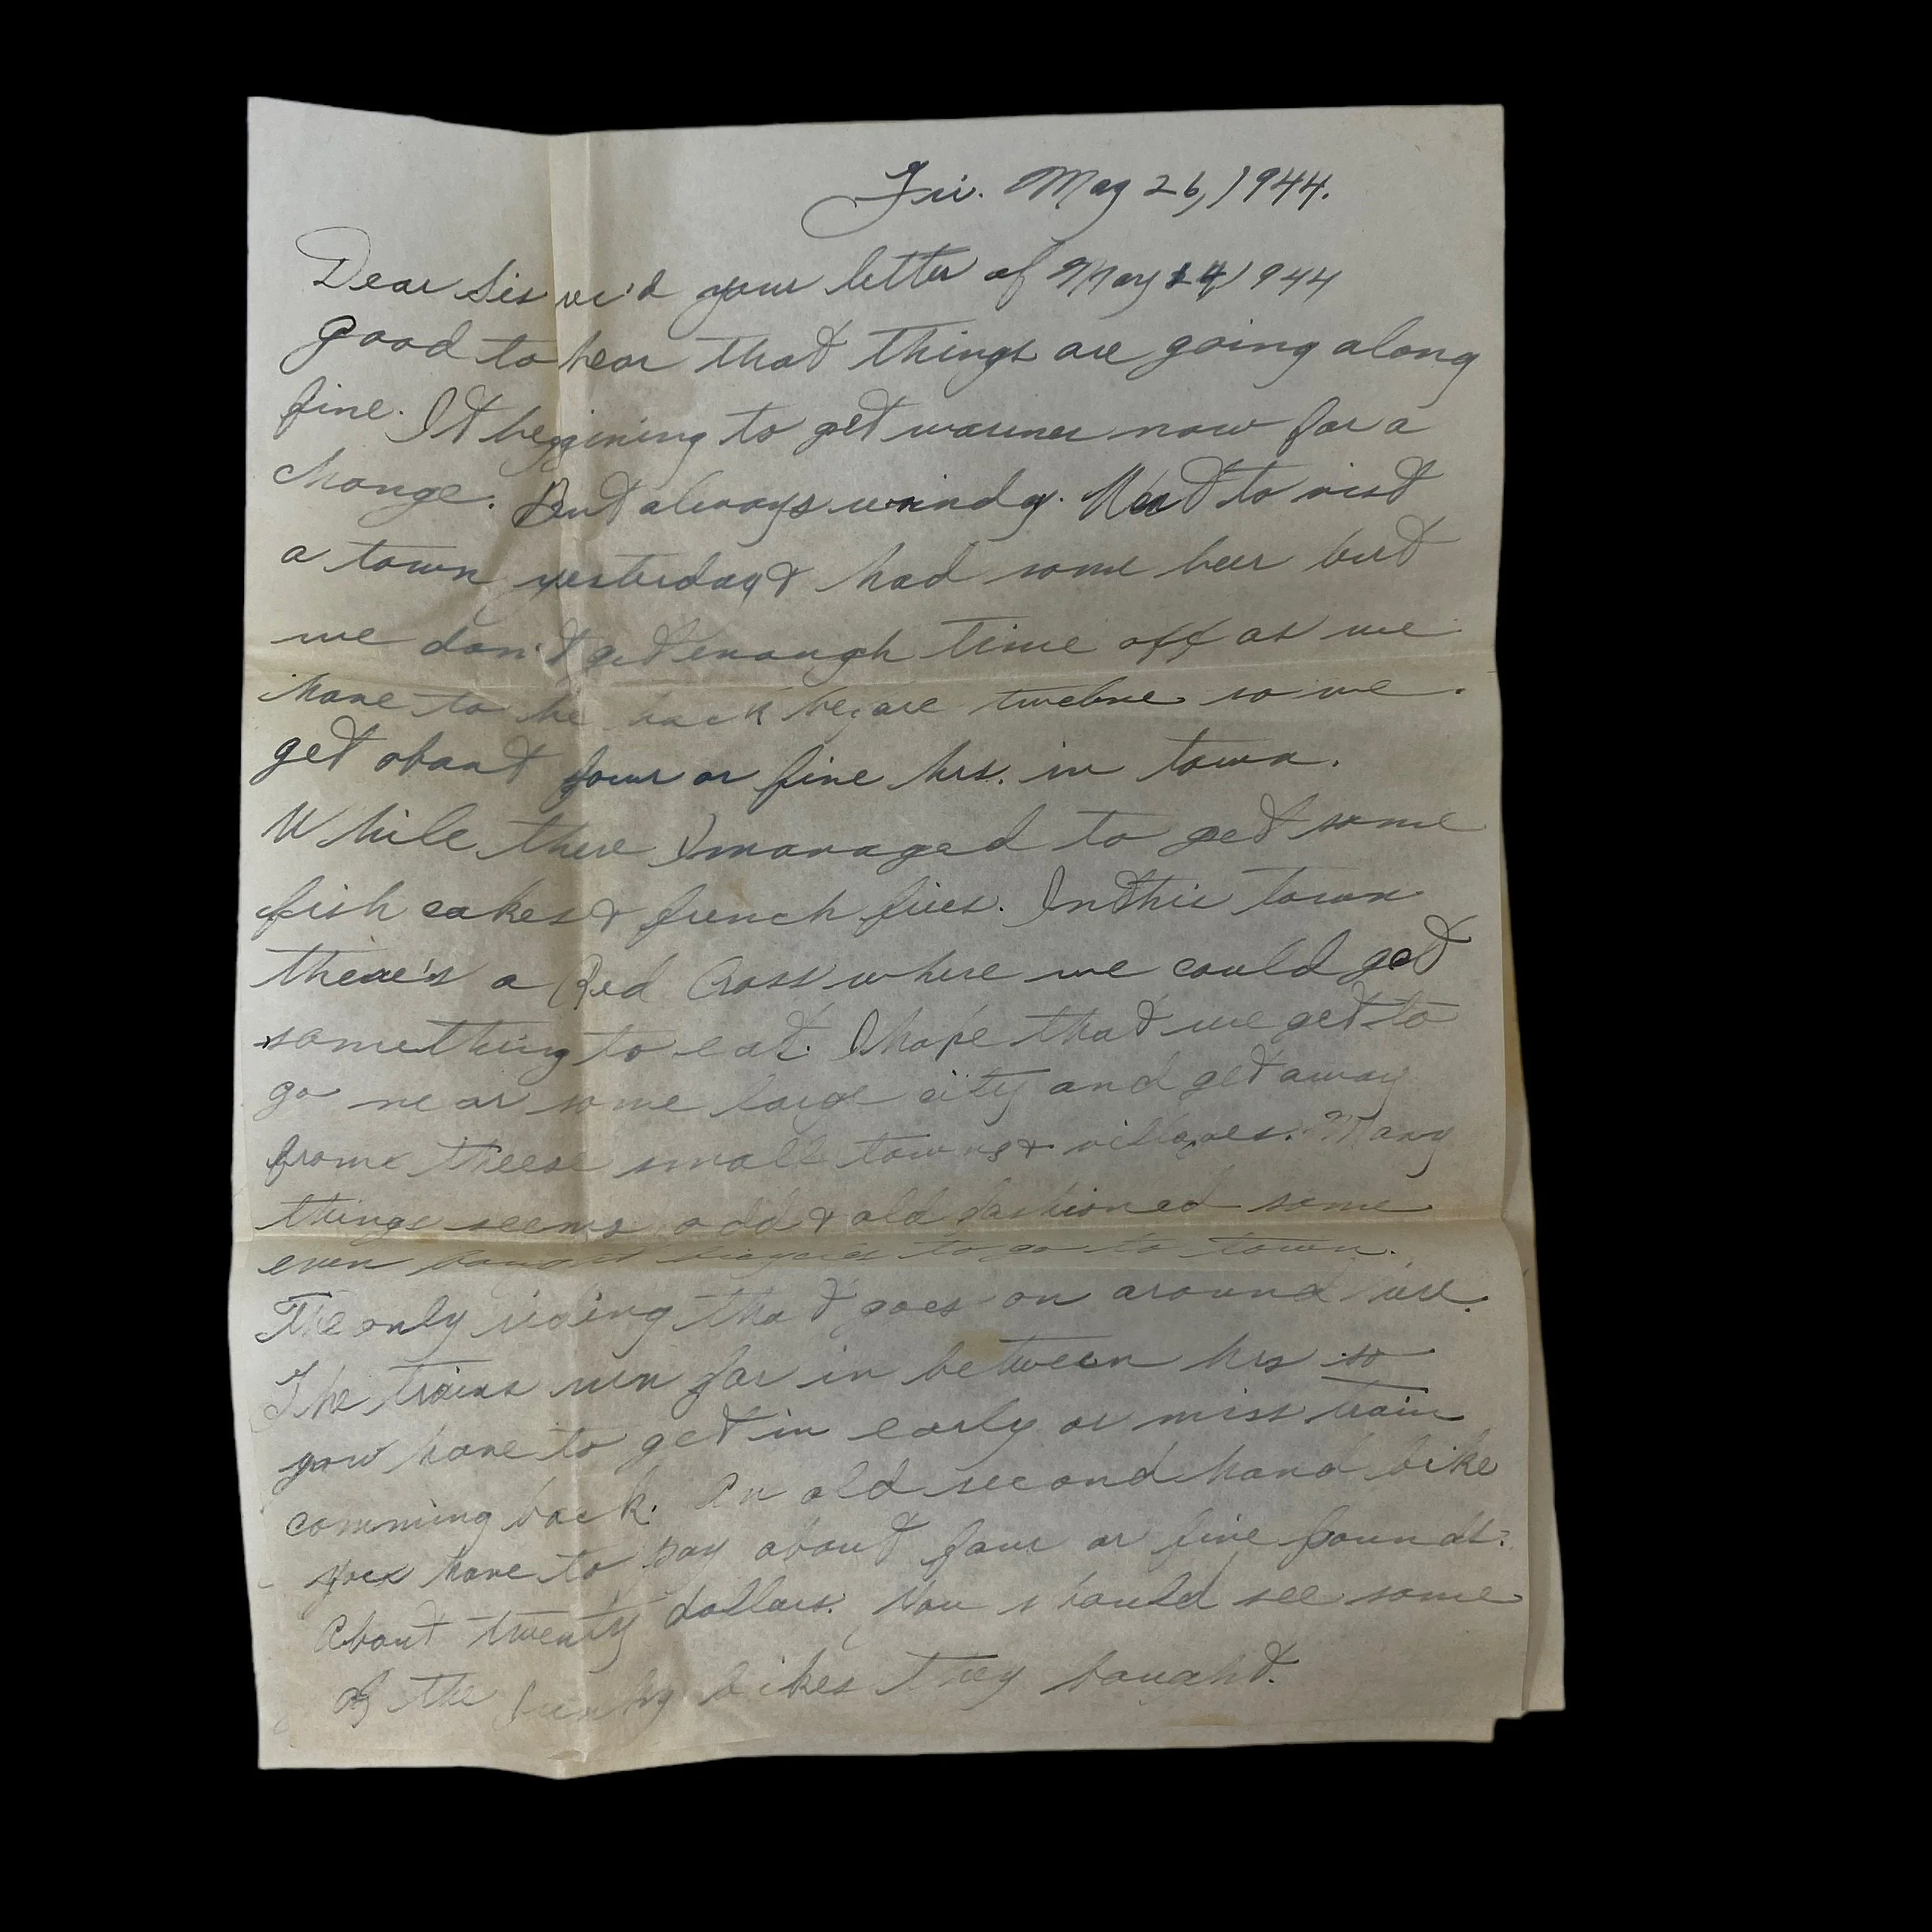 Fri. May 26, 1944.
Dear Sis rec'd your letter of May 14 1944
good to hear that things are going along
fine. It beggining to get warmer now for a
change. But always windy. Went to visit
a town yesterday & had some beer but
we don't get enough time off as we
have to be back before twelve so we
get about four or five hrs. in town.
While there I managed to get some
fish cakes & french fries. In this town
there's a Red Cross where we could get
something to eat. I hope that we get to
go near some large city and get away
from theese small towns & villages. Many
things seems odd & old fashioned some
even bought bicycles to go to town.
The only riding that goes on around here.
The trains run far in between hrs so
you have to get in early or miss train
comming back. An old second hand bike
you have to pay about four or five pounds.
About twenty dollars. You should see some
of the bikes they bought.